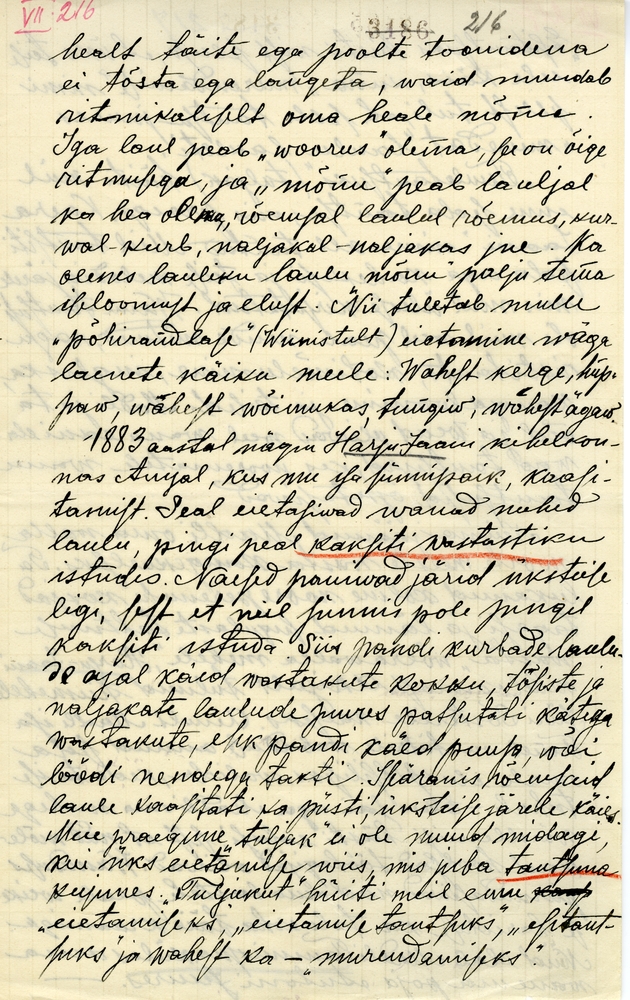 VII 216
3186 216
healt täite ega poolte toonidena
ei tõsta ega langeta, waid muudab
ritmikaliselt oma heale mõnu.
Iga laul peab „woorus" olema, se on õige
ritmusega, ja „mõnu" peab lauljal
ka hea olema, rõemsal laulul rõemus, kur-
wal-kurb, naljakal-naljakas jne. Ka
olenes lauliku laulu mõnu palju tema
iseloomust ja elust. Nii tuletab mulle
„põhirandlase" (Wiinistult) eietamine wäga
laenete käiku meele: Wahest kerge, hüp-
paw, wahest wõimukas, tungiw, wahest ägaw.
1883 aastal nägin Harju Jaani kihelkon-
nas Anijal, kus mu isa sünnipaik, kaasi-
tamist. Seal eietasiwad wanad mehed
laulu, pingi peal kaksiti wastastiku
istudes. Naesed panniwad järid üksteise
ligi, sest et neil sünnis pole pingil
kaksiti istuda. Siis pandi kurbade laulu-
de ajal käed wastakute kokku, tõsiste ja
naljakate laulude juures patsutati kätega
wastakute, ehk pandi käed puusa, wõi
löödi nendega takti. Iseäranis rõemsaid
laule kaasitati ka püsti, üksteise järele käies.
Meie praegune „tuljak" ei ole muud midagi,
kui üks eietämise wiis, mis juba tantsuna
kujunes. „Tuljakut" hüiti meil ennu
„eietamiseks", „eietamise tantsuks", „esitant-
suks" ja wahest ka — „murendamiseks".